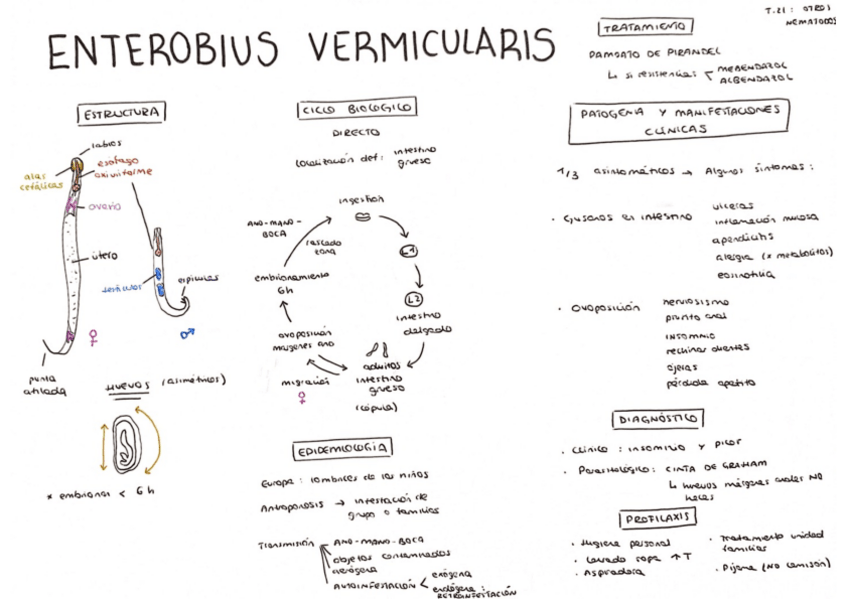 T.21: OTROS
NEMATODOS
ENTEROBIUS VERMICULARIS
ESTRUCTURA
labios
esófago
oxiuriforme
alas
cefálicas
ovario
útero
testículos
espículas
♀
♂
punta
afilada
HUEVOS (asimétricos)
* embrionan < 6h
CICLO BIOLOGICO
DIRECTO
Localización def: intestino
grueso
ingestión
ANO-MANO-
BOCA
rascado
zona
L1
embrionamiento
6h
L2
intestino
delgado
ovoposición
márgenes ano
migración
♀
adultos
intestino
grueso
(cópula)
EPIDEMIOLOGÍA
Europa: lombrices de los niños
Antroponosis → infestación de
grupo o familias
Transmisión
ANO-MANO-BOCA
objetos contaminados
aerógena
AUTOINFESTACIÓN < exógena
endógena:
RETROINFESTACIÓN
TRATAMIENTO
PAMOATO DE PIRANTEL
↳ si resistencias < MEBENDAZOL
ALBENDAZOL
PATOGENIA Y MANIFESTACIONES
CLINICAS
1/3 asintomáticos → Algunos síntomas:
· Gusanos en intestino
ulceras
inflamación mucosa
apendicitis
alergia (x metabolitos)
eosinofilia
· Ovoposición
nerviosismo
prurito anal
insomnio
rechinar dientes
ojeras
pérdida apetito
DIAGNÓSTICO
· Clínico: insomnio y picor
· Parasitológico: CINTA DE GRAHAM
↳ huevos márgenes anales NO
heces
PROFILAXIS
· Higiene personal
· Lavado ropa ↑T
· Aspiradora
· Tratamiento unidad
familias
· Pijama (NO camisón)